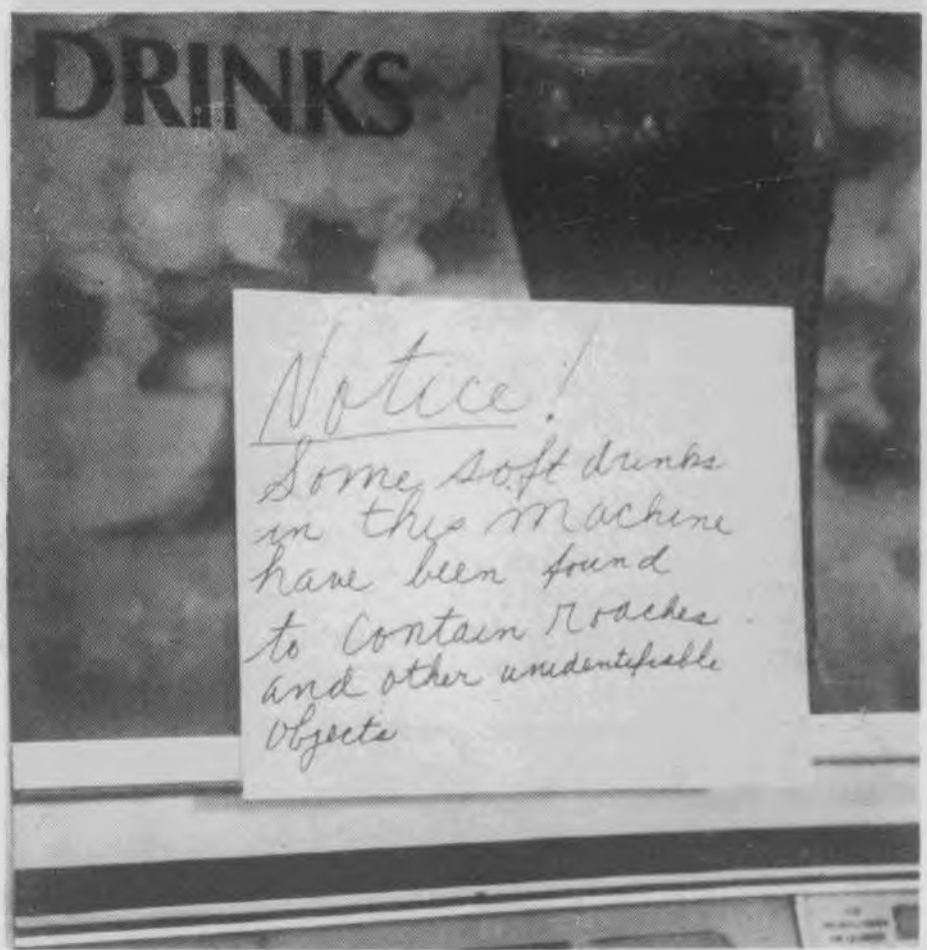 DRINKS
Notice!
Some soft drinks
in this machine
have been found
to contain roaches
and other unidentifiable
objects